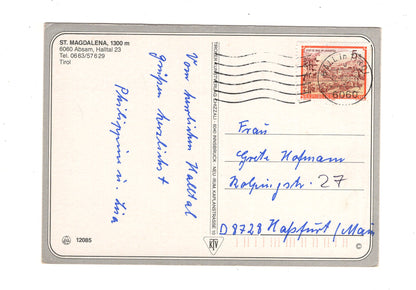 ST. MAGDALENA, 1300 m
6060 Absam, Halltal 23
Tel. 0663/57629
Tirol
Vom herrlichen Halltal
grüßen herzlichst
Philippine u. Lisa
TIROLER KUNSTVERLAG CHIZZALI · 6040 INNSBRUCK - NEU RUM, KAPLANSTRASSE 10
KTV
12085
5
HALL in
6060
Frau
Grete Hofmann
Kolpingstr. 27
D 8728 Haßfurt/Main
©